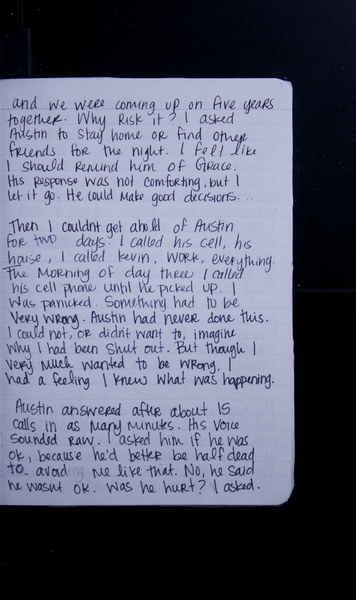 and we were coming up on five years
together. Why Risk it? I asked
Austin to stay home or find other
friends for the night. I felt like
I should remind him of Grace.
His response was not comforting, but I
let it go. He could make good decisions...
Then I couldnt get ahold of Austin
for two days. I called his cell, his
house, I called kevin, work, everything.
The morning of day three I called
his cell phone until he picked up. I
was panicked. Something had to be
very wrong. Austin had never done this.
I could not, or didn't want to, imagine
why I had been shut out. But though I
very much wanted to be wrong, I
had a feeling I knew what was happening.
Austin answered after about 15
calls in as many minutes. His voice
sounded raw. I asked him if he was
ok, because he'd better be half dead
to avoid me like that. No, he said
he wasnt ok. Was he hurt? I asked.